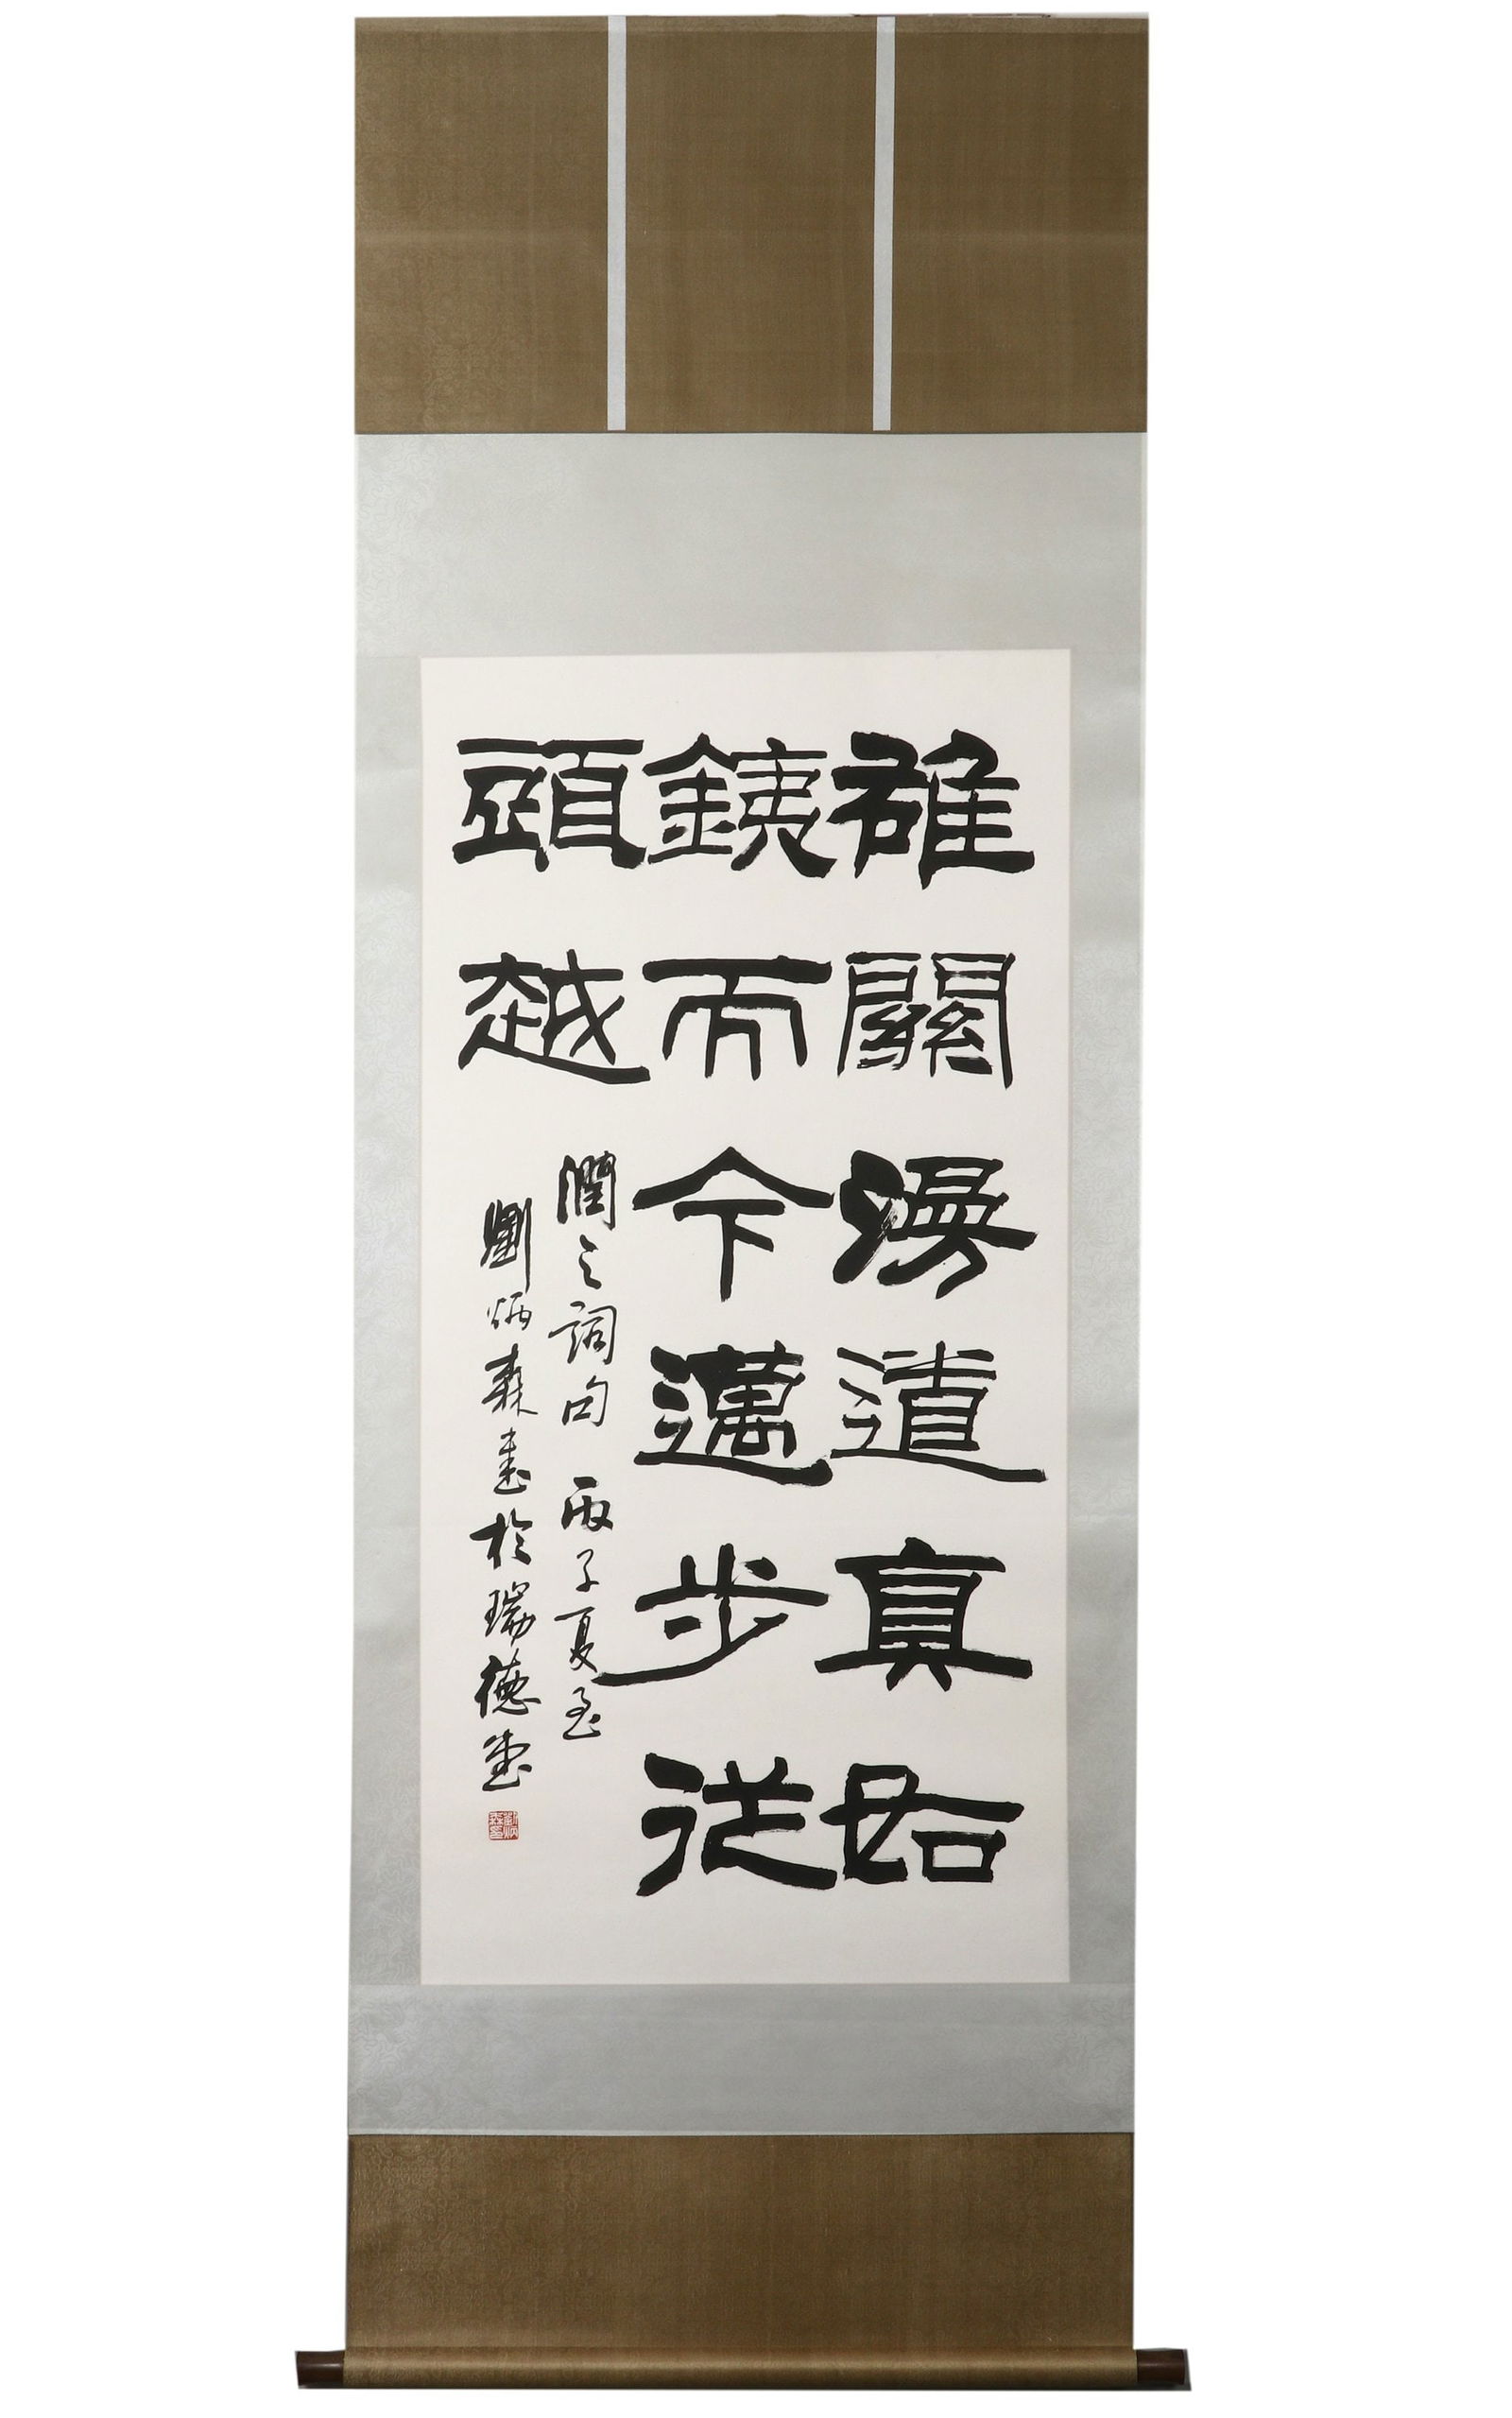 雄關漫道真如
鐵而今邁步從
頭越
潤之詞句 丙子夏至
劉炳森書於瑞德堂